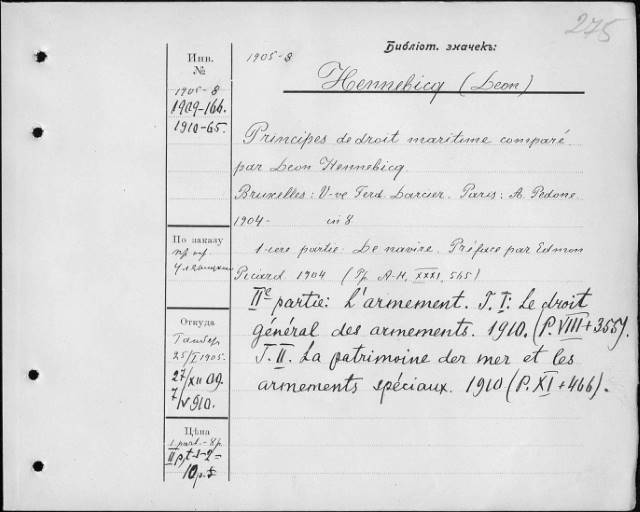 275
Библіот. значекъ:
Инв.
№
1905-8
1905-8
1909-166.
1910-65.
Hennebicq (Leon)
Principes de droit maritime comparé
par Leon Hennebicq
Bruxelles: V-ve Ferd. Larcier. Paris: A. Pedone
1904- in 8
По заказу
пр. пр.
1-iere partie: De navire. Préface par Edmon
Picard 1904 (Pp. A-H, XXXI, 565)
IIe partie: L'armement. T. I: Le droit
général des armements. 1910. (P. VIII+355).
T. II. La patrimoine der mer et les
armements spéciaux. 1910 (P. XI+466).
Откуда
25/I 1905.
27/XII 09.
7/V 910.
Цѣна
1 part.-8р.